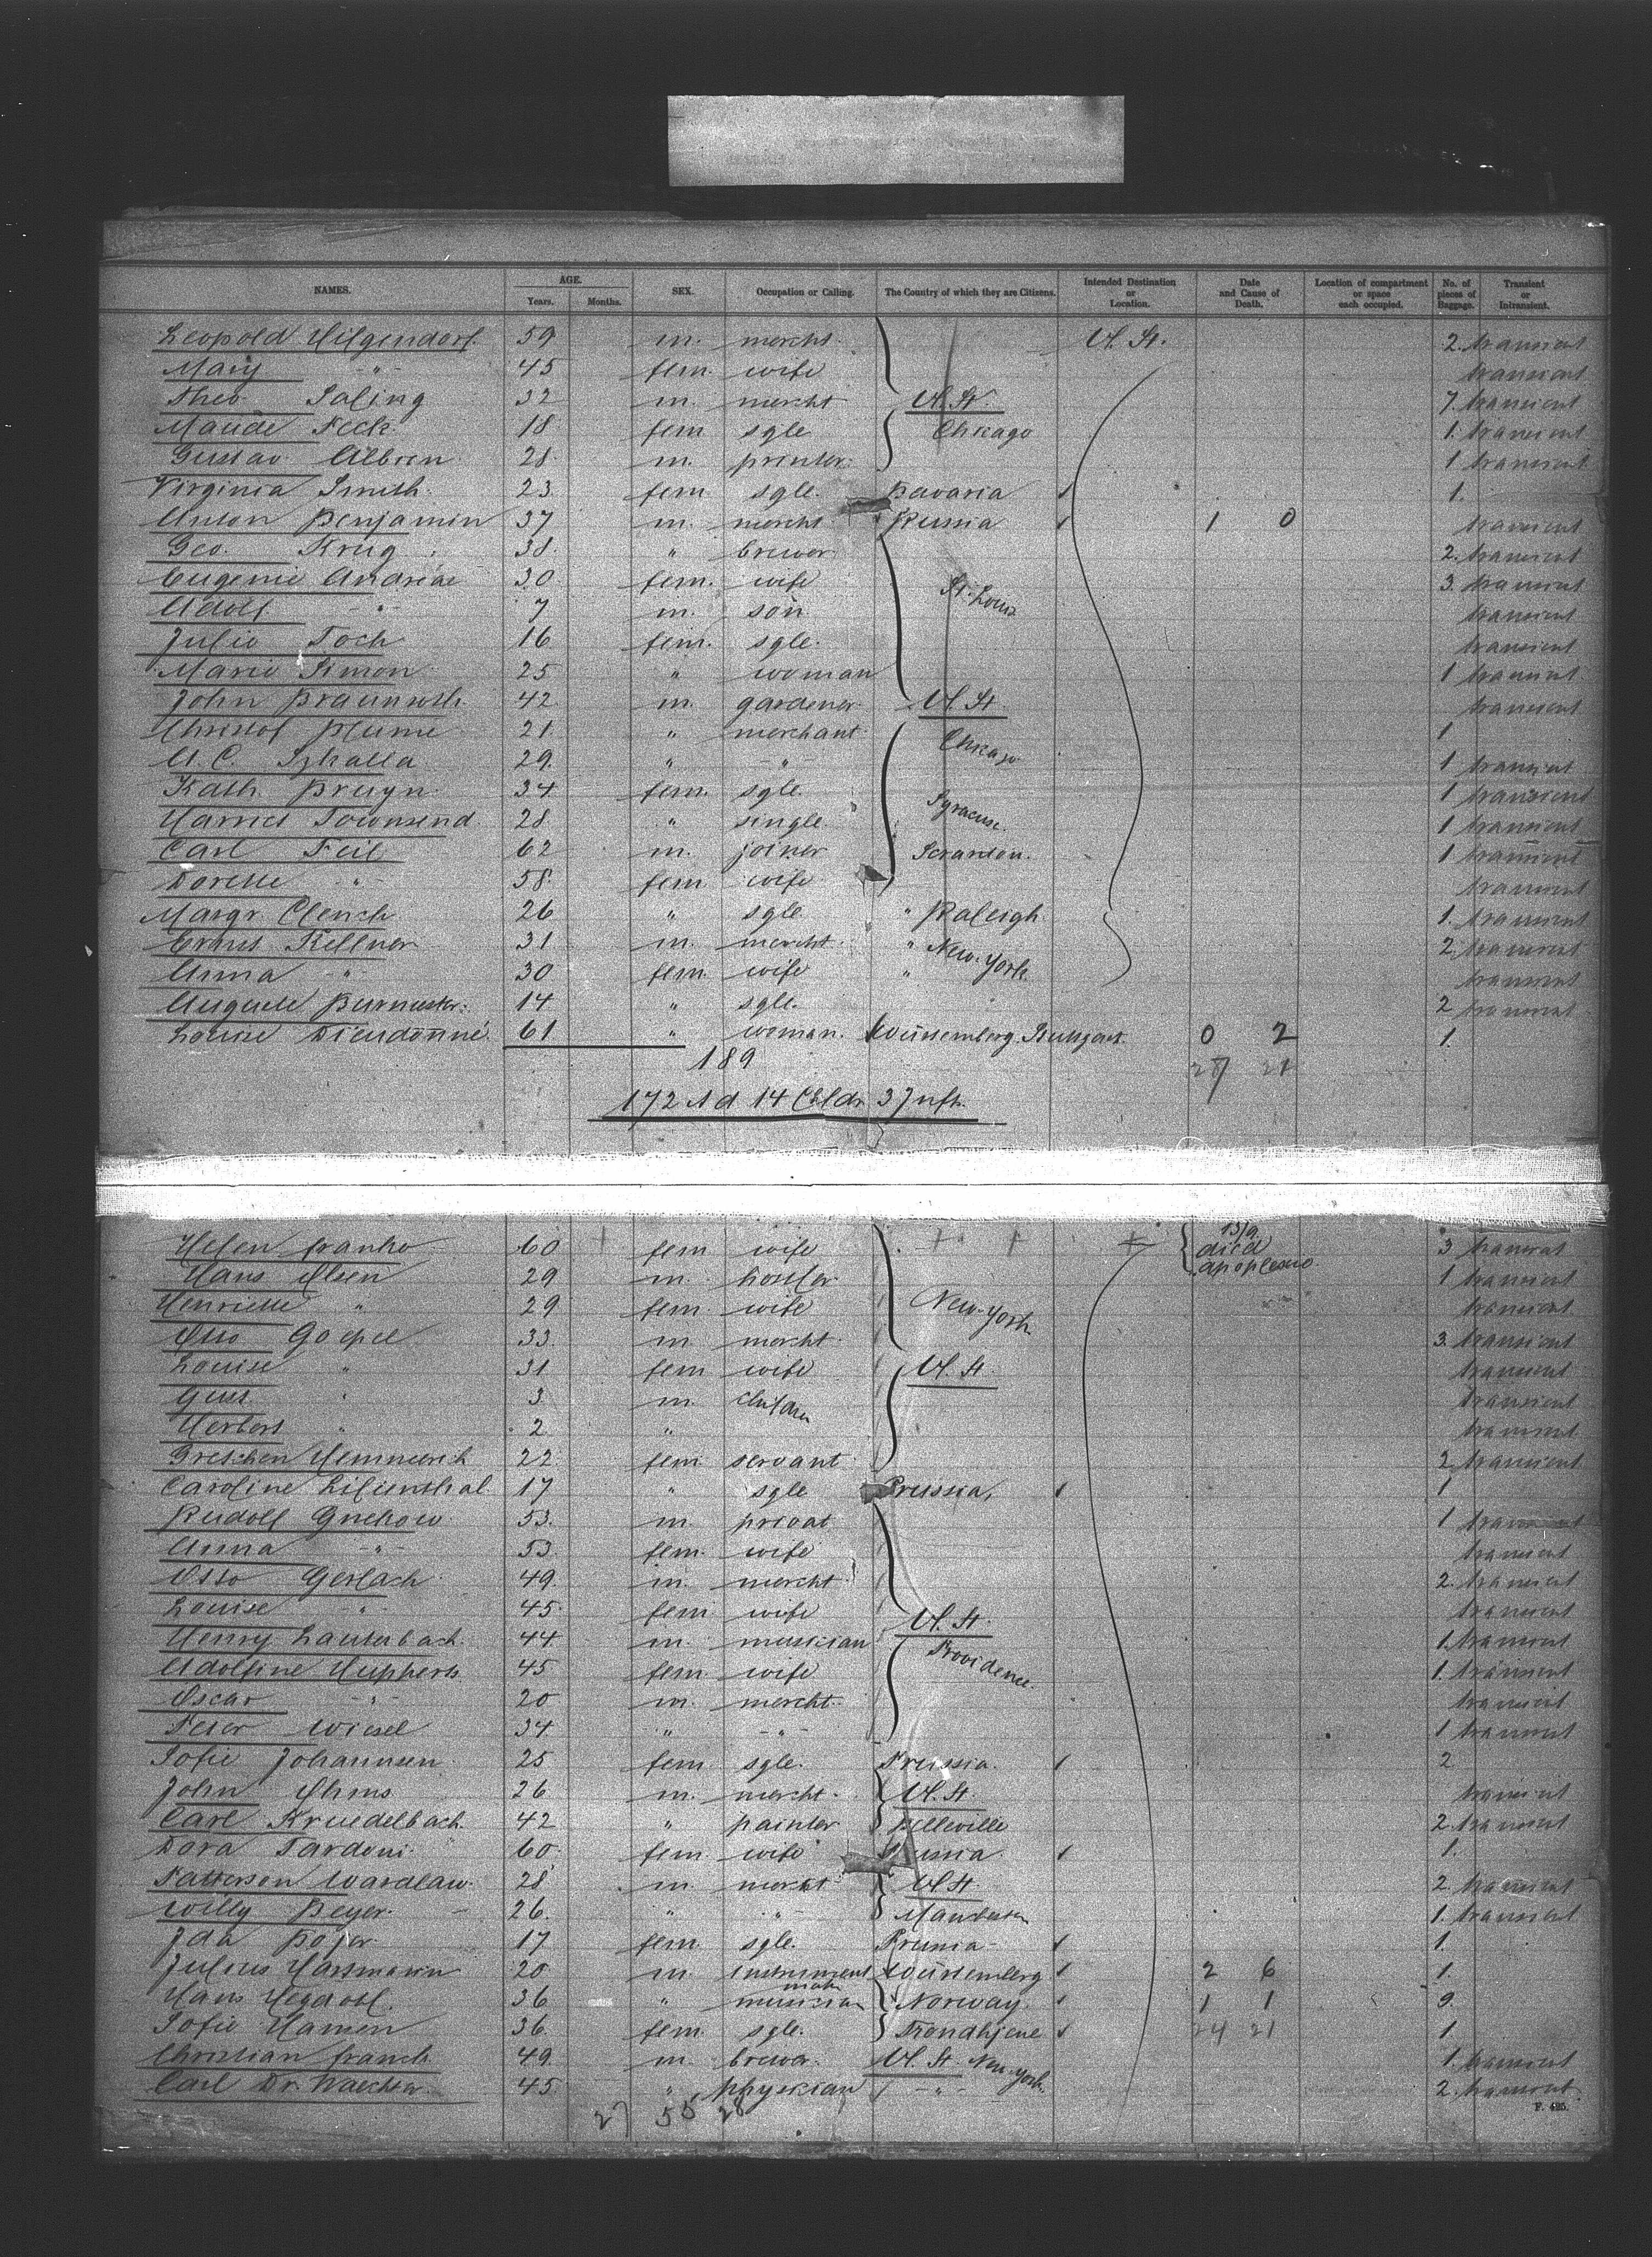 NAMES. AGE. SEX. Occupation or Calling. The Country of which they are Citizens. Intended Destination or Location. Date and Cause of Death. Location of compartment or space each occupied. No. of pieces of Baggage. Transient or Intransient.
Years. Months.
Leopold Hilgendorf 59 m. mercht. U. St. 2. transient
Mary " 45 fem. wife transient
Theo Saling 32 m. mercht U. St. 7. transient
Maude Feck 18 fem sgle Chicago 1. transient
Gustav 28 m. printer 1 transient
Virginia Smith 23 fem sgle. Bavaria 1.
Anton Benjamin 37 m. mercht Russia 1 0 transient
Geo. Krug 38 " brewer 2. transient
Eugenie Andreae 30 fem. wife St. Louis 3. transient
Adolf " 7 m. son transient
Julie Toch 16 fem. sgle. transient
Marie Simon 25 " woman 1 transient
John 42 m. gardener U. St. transient
Christof Blume 21 " merchant Chicago 1
A. C. 29. " " 1 transient
Kath. Bruyn 34 fem. sgle 1 transient
Harriet Townsend 28 " single Syracuse. 1 transient
Carl Feil 62 m. joiner Scranton. 1 transient
Dorette " 58 fem wife transient
Margr Clench 26 " sgle " Raleigh 1. transient
Ernst Kellner 31 m. mercht. " New-York 2. transient
Anna " 30 fem. wife " transient
Auguste Burmester 14 " sgle. 2 transient
Louise Dieudonné 61 " woman. Württemberg. Stuttgart. 0 2 1.
189 27 21
172 Ad 14 Chldr 3 Infts.
Helen 60 fem wife 13/9. died apoplexie 3 transient
Hans Olsen 29 m. hostler 1 transient
Henriette " 29 fem. wife New-York transient
Otto Goepel 33 m. mercht. 3. transient
Louise " 31 fem wife U. St. transient
Gust. " 3 m. children transient
Herbert " 2 " transient
Gretchen Hemmerich 22 fem servant 2 transient
Caroline Lilienthal 17 " sgle Prussia, 1
Rudolf Grehow 53. m. privat 1 transient
Anna " 53 fem. wife transient
Otto Gerlach 49. m. mercht 2. transient
Louise " 45 fem wife U. St. transient
Henry Lauterbach 44 m. musician Providence. 1. transient
Adolfine Hupherts 45 fem wife 1. transient
Oscar " 20 m. mercht. transient
Peter Wiesel 34 " " 1 transient
Sofie Johannsen 25 fem sgle. Prussia. 2
John Ahms 26 m. mercht. U. St. transient
Carl Kruedelbach 42 " painter Belleville 2. transient
Dora Tardoni 60 fem wife 1.
Patterson Wardlaw 28 m. mercht U. St. 2. transient
Willy Beyer 26. " " 1. transient
Ida Bojer 17 fem. sgle. Prussia 1.
Julius Hartmann 20 m. instrument mak. Württemberg 2 6 1.
Hans 36 " musician Norway 1 1 9.
Sofie Hansen 36 fem. sgle. Trondhjem 24 21 1.
Christian 49 m. brewer. U. St. New-York 1. transient
Carl Dr. Waechter 45 " physician " 2. transient
27 55 28
F. 425.